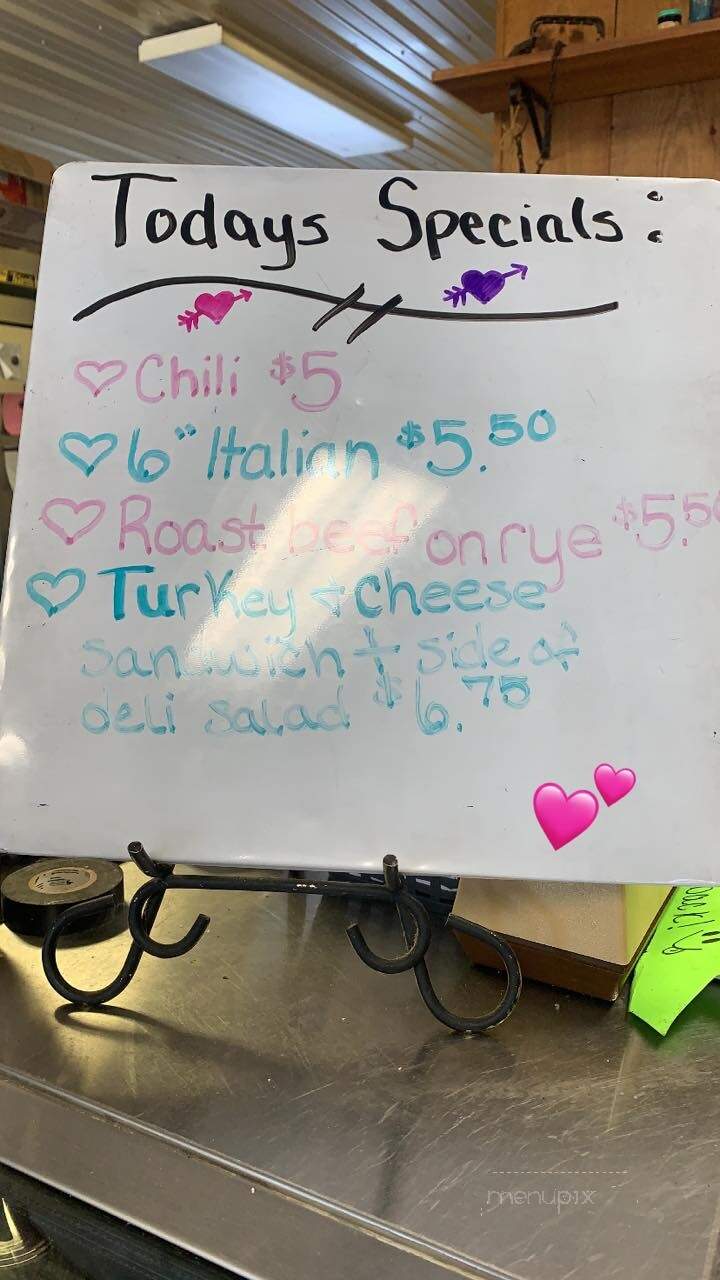 Todays Specials:
Chili $5
6" Italian $5.50
Roast beef on rye $5.50
Turkey + Cheese
sandwich + side of
deli salad $6.75
menupix